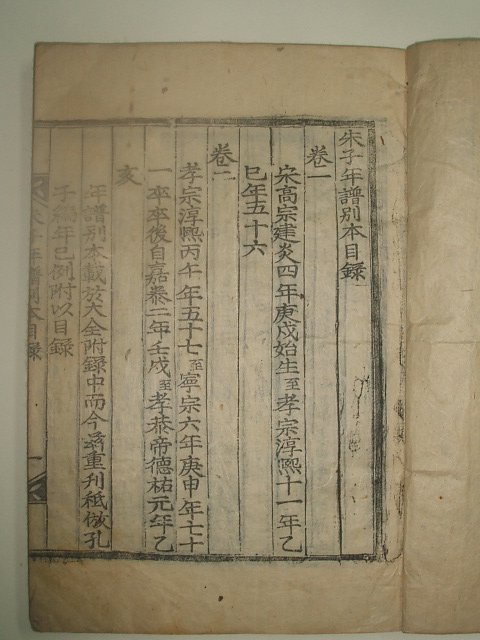 朱子年譜別本目錄
卷一
宋高宗建炎四年庚戌始生至孝宗淳熙十一年乙
巳年五十六
卷二
孝宗淳熙丙午年五十七至寧宗六年庚申年七十
一卒卒後自嘉泰二年壬戌至孝恭帝德祐元年乙
亥
年譜別本載於大全附錄中而今番重刋秪倣孔
子編年已例附以目錄
朱子年譜別本目錄
一